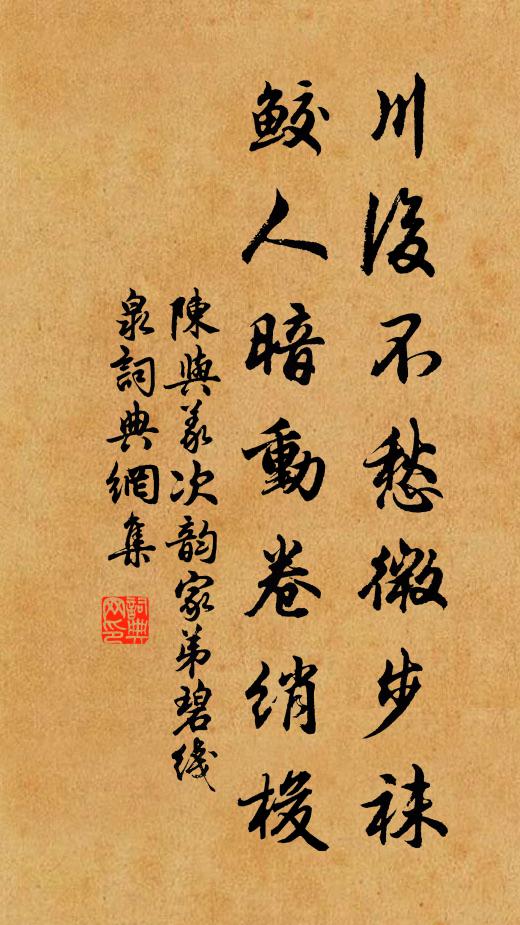 川後不愁微步袜
鮫人暗動卷綃梭
陳與義次韵家弟碧綫
泉詞典網集
詞典
网印